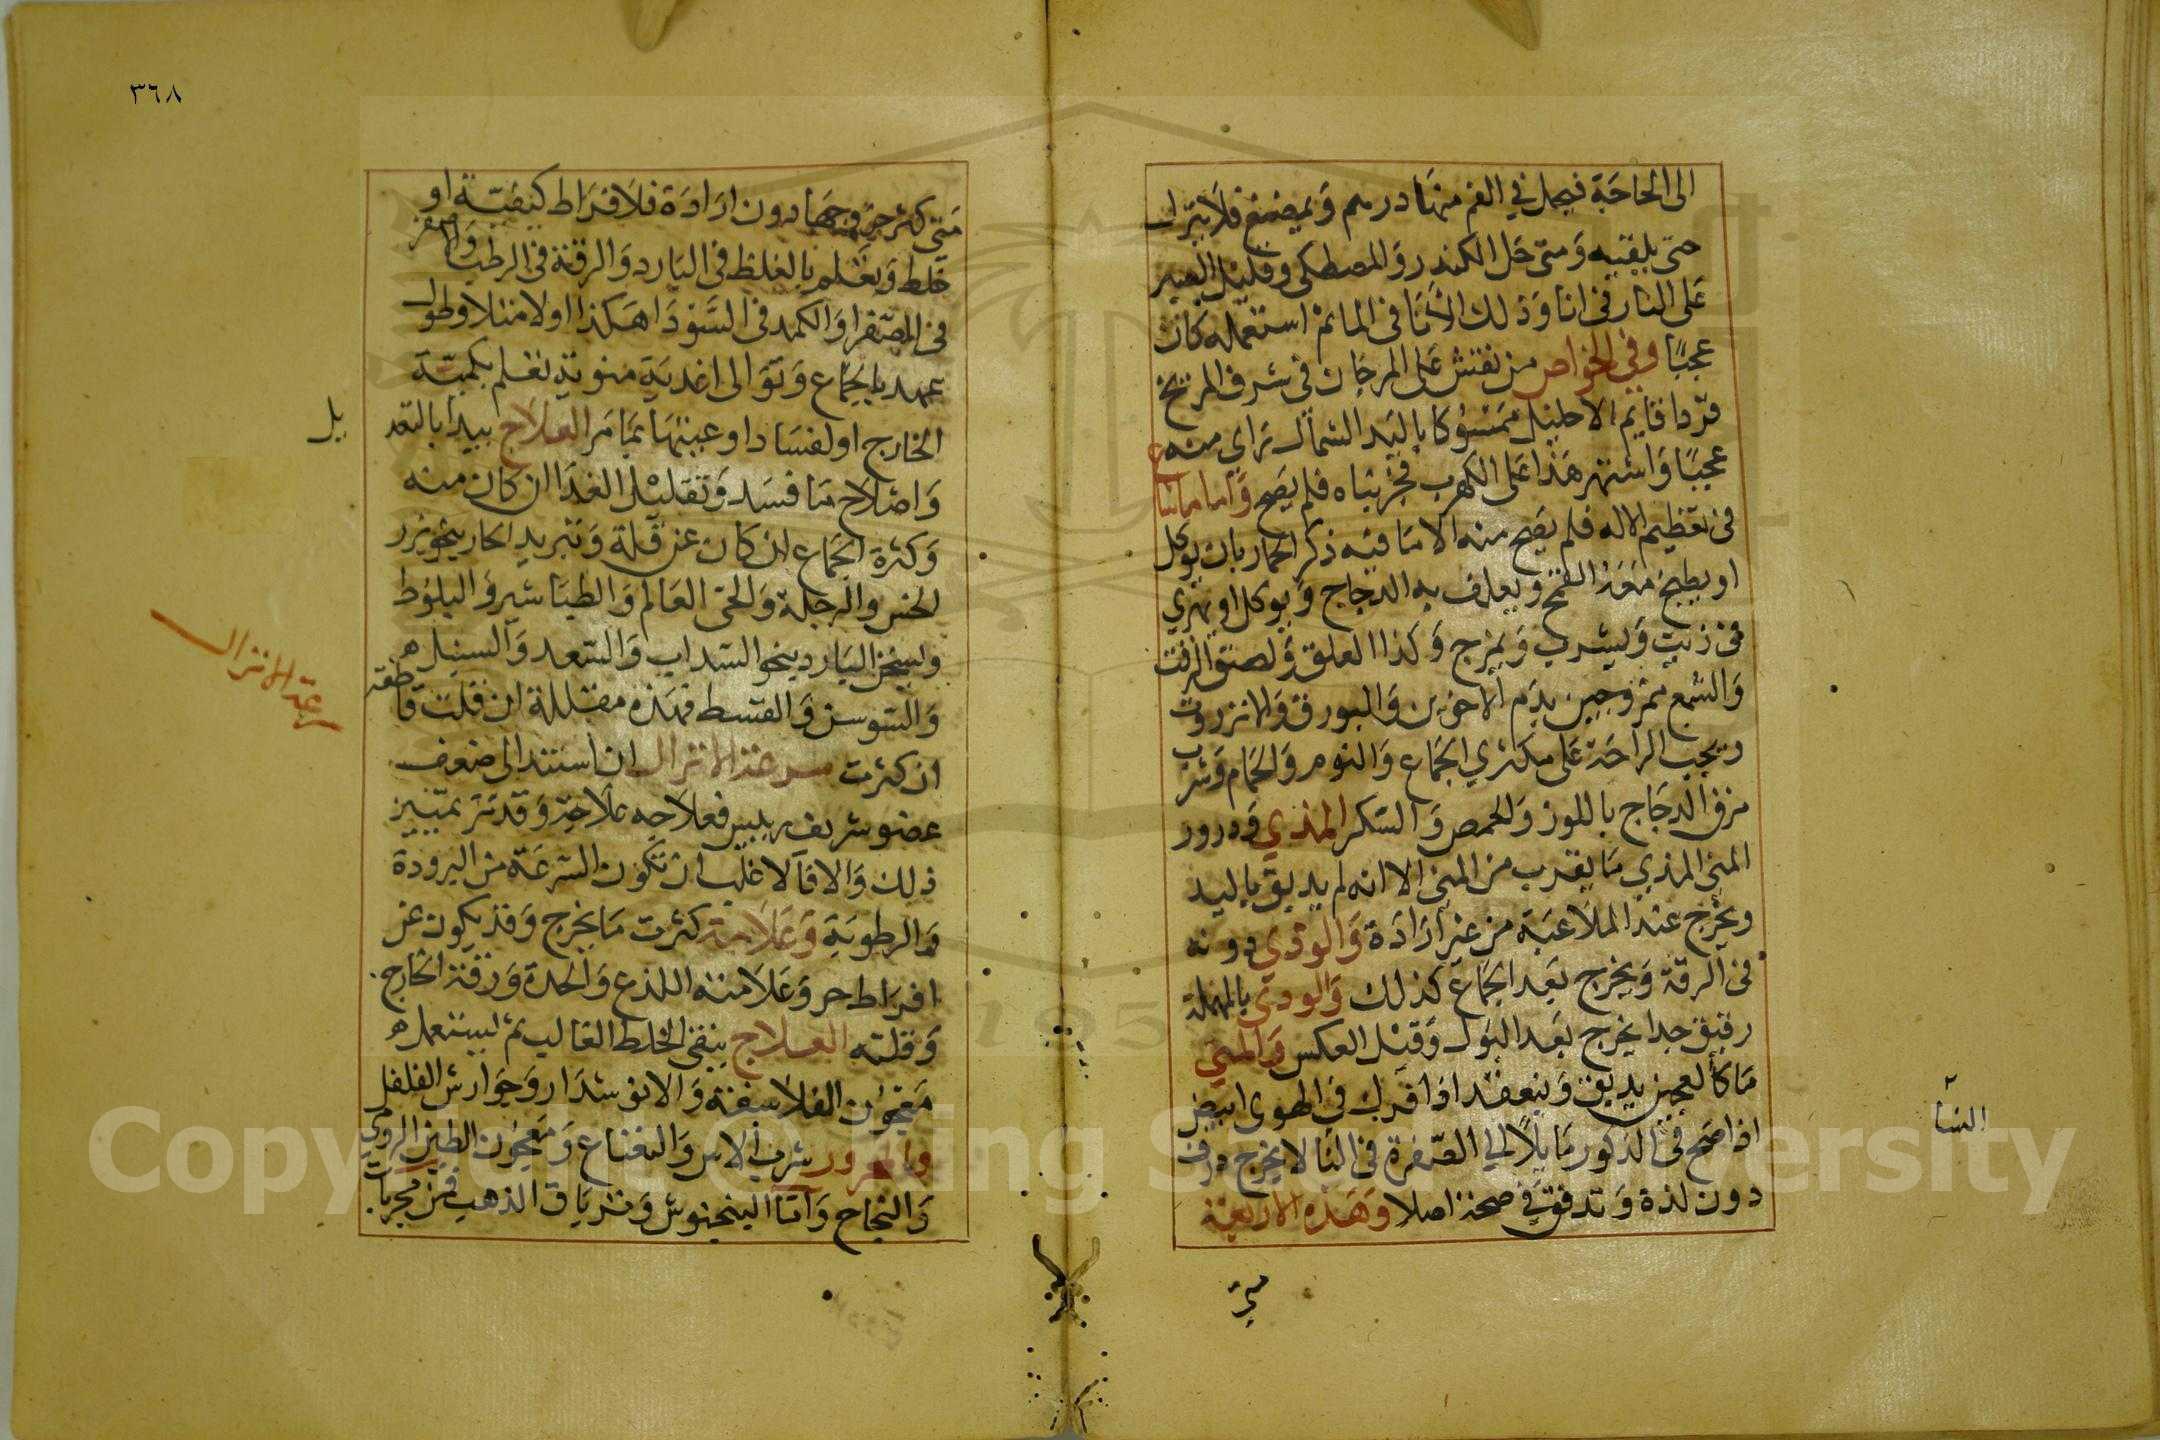 الى الحاجة فيجعل في الفم منها درهم ويمضغ فلا ينزل
حتى يلقيه ومتى حل الكندر والمصطكى وقليل العبير
على النار في انا وذلك الانا في الما ثم استعمله كان
عجيبا وفي الخواص من نقش على المرجان في شرف المريخ
قردا قايم الاحليل ممسوكا باليد الشمال تراى منه
عجبا واشتهر هذا على الكهرب فجربناه فلم يصح واما ما شاع
في تعظيم الاله فلم يصح منه الا ما فيه ذكر الحمار بان يوكل
او يطبخ معه القمح ويعلف به الدجاج ويوكل او يهري
في زيت ويشرب ويمزج وكذا العلق ولصق الزفت
والشمع ممزوجين بدم الاخوين والبورق والانزروت
ويجب الراحة على مكثري الجماع والنوم والحمام وشرب
مرق الدجاج باللوز والحمص والسكر المذي ودرور
المني المذي ما يقرب من المني الا انه لم يدبق باليد
ويخرج عند الملاعبة من غير ارادة والوذي دونه
في الرقة ويخرج بعد الجماع كذلك والودي بالمهملة
رقيق جدا يخرج بعد البول وقيل العكس والمني
ما كالعجين يدبق وينعقد اذا افرك في الهوى ابيض
اذا صح في الذكور مايلا الى الصفرة في النسا لا يخرج
دون لذة وتدفق في صحة اصلا وهذه الاربعة
النسا
متى
٣٦٨
متى كثر خروجها دون ارادة فلافراط كيفية او
خلط ويعلم بالغلظ في البارد والرقة في الرطب والصفر
في الصفرا والكمد في السودا هكذا او لامتلا وطول
عهد بالجماع وتوالى اغدية منوية تعلم بكمية
الخارج او لفساد اوعيتها بما مر العلاج يبدا بالتعديل
واصلاح ما فسد وتقليل الغدا ان كان منه
وكثرة الجماع ان كان عن قلة وتبريد الحار بنحو بزر
الخس والرجلة والحى العالم والطباشير والبلوط
وتسخين البارد بنحو السداب والسعد والسنبل
والسوسن والقسط فهذه مقللة ان قلت قاطعة
ان كثرت سرعة الانزال ان استند الى ضعف
عضو شريف رييس فعلاجه علاجه وقد مر تمييز
ذلك والا فالاغلب ان تكون السرعة من البرودة
والرطوبة وعلامته كثرت ما يخرج وقد يكون عن
افراط حر وعلامته اللذع والحدة ورقة الخارج
وقلته العلاج ينقي الخلط الغالب ثم يستعمل
معجون الفلاسفة والانوشدارو وجوارش الفلفل
وللمحرور شرب الاس والنعناع ومعجون الطين الرومي
والنجاح واما الينجنوش وترياق الذهب فمن مجربات
يل
سرعة الانزال